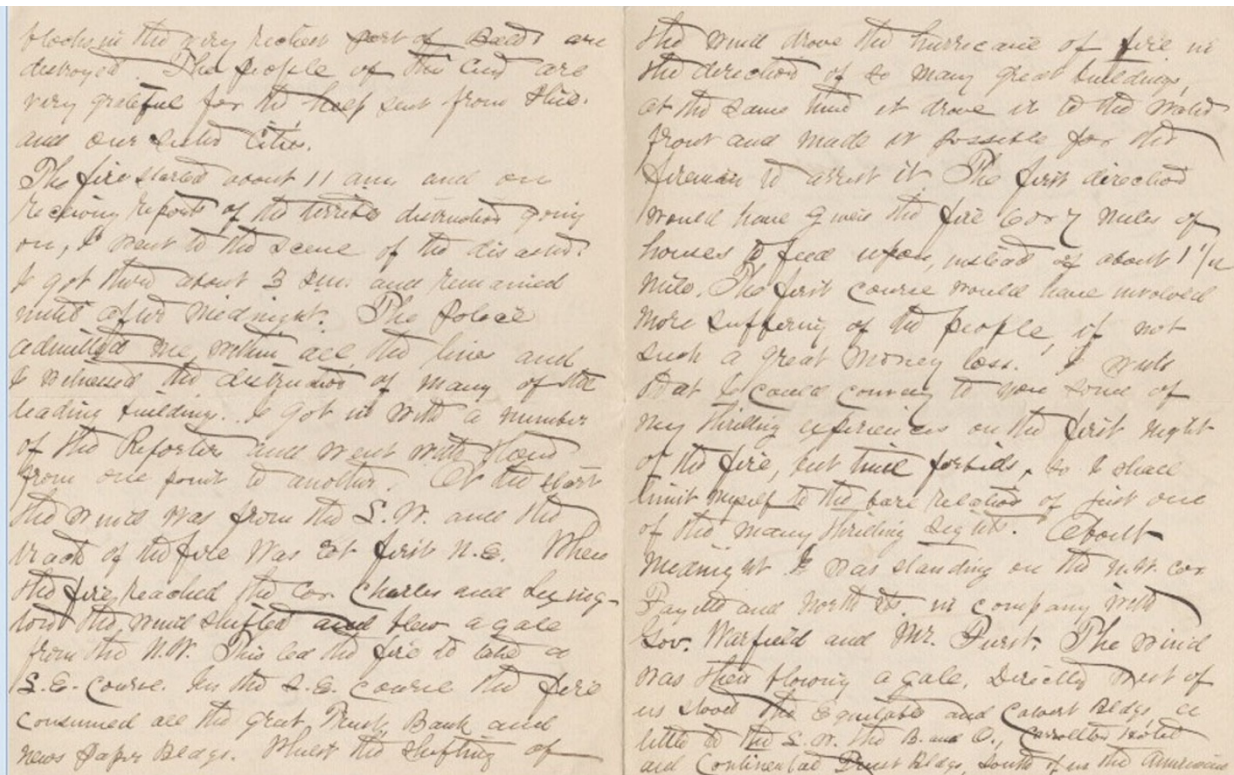 blocks in the very richest part of Balto are
destroyed. The people of this City are
very grateful for the help sent from Phila.
and our sister Cities.
The fire started about 11 am and on
receiving reports of the terrible destruction going
on, I went to the scene of the disaster.
I got there about 3 pm. and remained
until after midnight. The Police
admitted me within all the lines and
I witnessed the destruction of many of the
leading building. I got in with a number
of the Reporters and went with them
from one point to another. At the start
the wind was from the S.W. and the
track of the fire was at first N.E. When
the fire reached the cor Charles and Lexing-
ton the wind shifted and blew a gale
from the N.W. This led the fire to take a
S.E. course. In the S.E. course the fire
consumed all the great Trust, Bank and
news paper Bldgs. Whilst the shifting of
the wind drove the hurricane of fire in
the direction of so many great buildings,
at the same time it drove it to the water
front and made it possible for the
firemen to arrest it. The first direction
would have given the fire 6 or 7 miles of
houses to feed upon, instead of about 1 1/2
mile. The first course would have involved
more suffering of the people, if not
such a great money loss. I wish
that I could convey to you some of
my thrilling experiences on the first night
of the fire, but time forbids, so I shall
limit myself to the bare relation of just one
of the many thrilling sights. About
midnight I was standing on the N.W. cor
Fayette and North Sts. in company with
Gov. Warfield and Mr. Furst. The wind
was then blowing a gale. Directly west of
us stood the Equitable and Calvert Bldgs, a
little to the S.W. the B. and O., Carrollton Hotel
and Continental Trust Bldgs, South of us the American